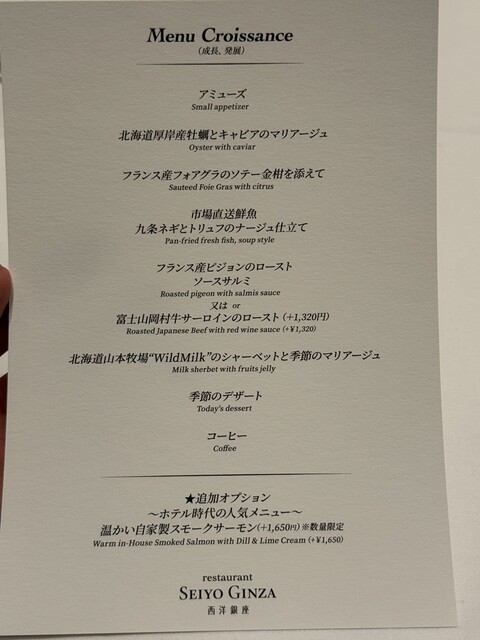 Menu Croissance
（成長、発展）
アミューズ
Small appetizer
北海道厚岸産牡蠣とキャビアのマリアージュ
Oyster with caviar
フランス産フォアグラのソテー金柑を添えて
Sauteed Foie Gras with citrus
市場直送鮮魚
九条ネギとトリュフのナージュ仕立て
Pan-fried fresh fish, soup style
フランス産ピジョンのロースト
ソースサルミ
Roasted pigeon with salmis sauce
又は or
富士山岡村牛サーロインのロースト（+1,320円）
Roasted Japanese Beef with red wine sauce (+¥1,320)
北海道山本牧場“WildMilk”のシャーベットと季節のマリアージュ
Milk sherbet with fruits jelly
季節のデザート
Today's dessert
コーヒー
Coffee
★追加オプション
～ホテル時代の人気メニュー～
温かい自家製スモークサーモン（+1,650円）※数量限定
Warm in-House Smoked Salmon with Dill & Lime Cream (+¥1,650)
restaurant
SEIYO GINZA
西洋銀座